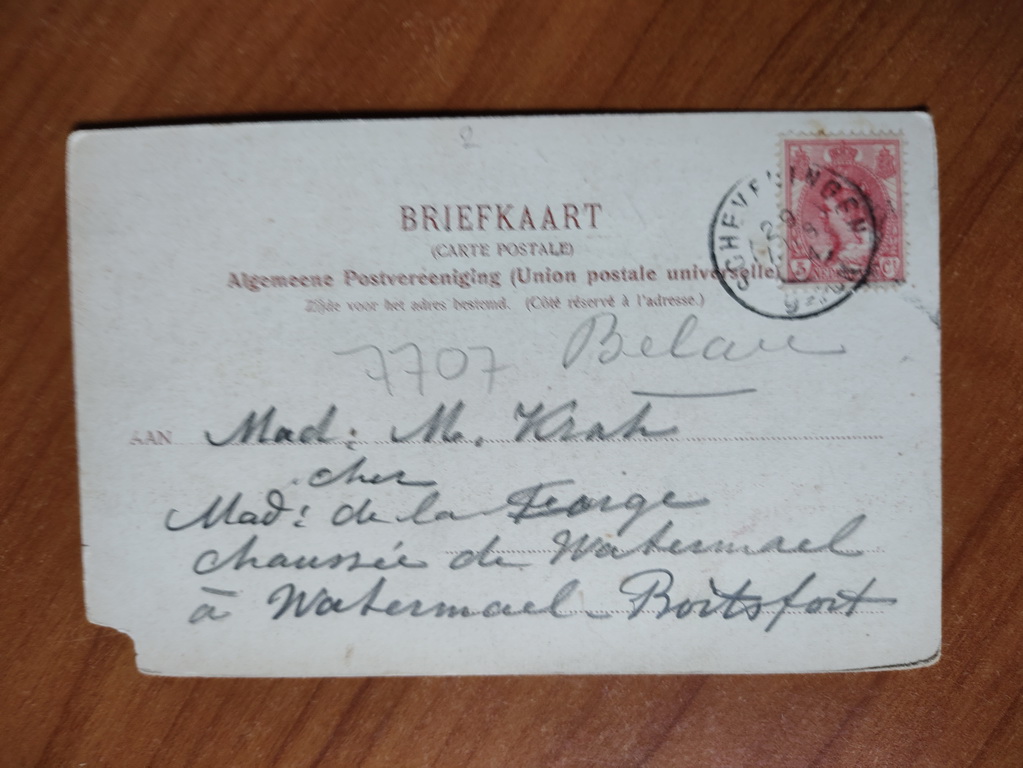 2
BRIEFKAART
(CARTE POSTALE)
Algemeene Postvereeniging (Union postale universelle)
Zijde voor het adres bestemd. (Côté réservé à l'adresse.)
SCHEVENINGEN
29
7707
AAN Mad: M. Krah
cher
Mad: de la
chaussée de Watermael
à Watermael-Boitsfort